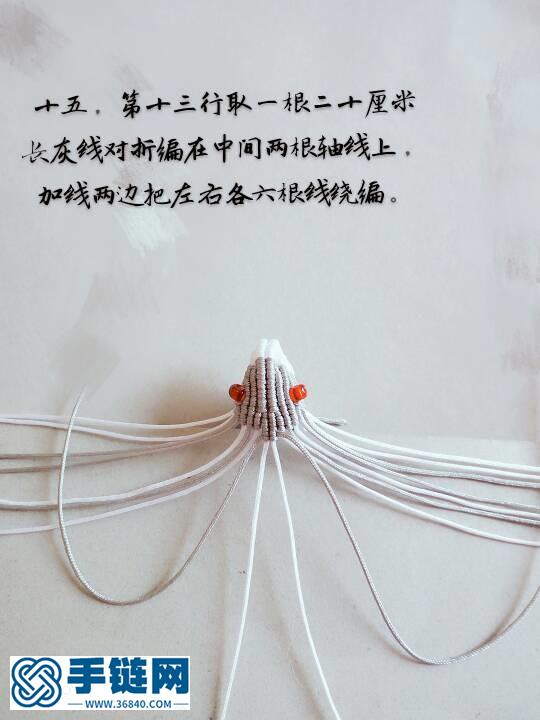 十五，第十三行取一根二十厘米
长灰线对折编在中间两根轴线上，
加线两边把左右各六根线绕编。
手链网
WWW.36840.COM